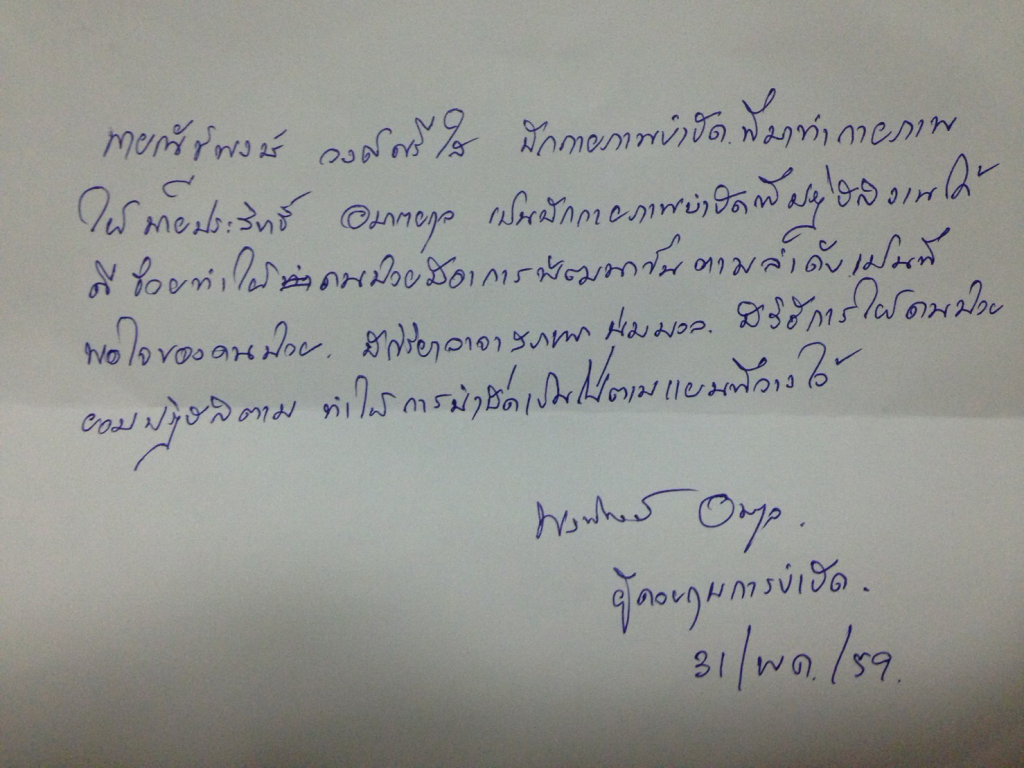 กายภาพบำบัด ที่มาทำกายภาพ
ให้นายประสิทธิ์ เป็นนักกายภาพบำบัดที่ปฏิบัติงานได้
ดี ช่วยทำให้คนป่วยมีอาการพัฒนาขึ้นตามลำดับ เป็นที่
พอใจของคนป่วย. มีกริยาวาจาสุภาพ นุ่มนวล. มีวิธีการให้คนป่วย
ยอมปฏิบัติตาม ทำให้การบำบัดเป็นไปตามแผนที่วางไว้
ผู้ควบคุมการบำบัด.
31/พค./59.